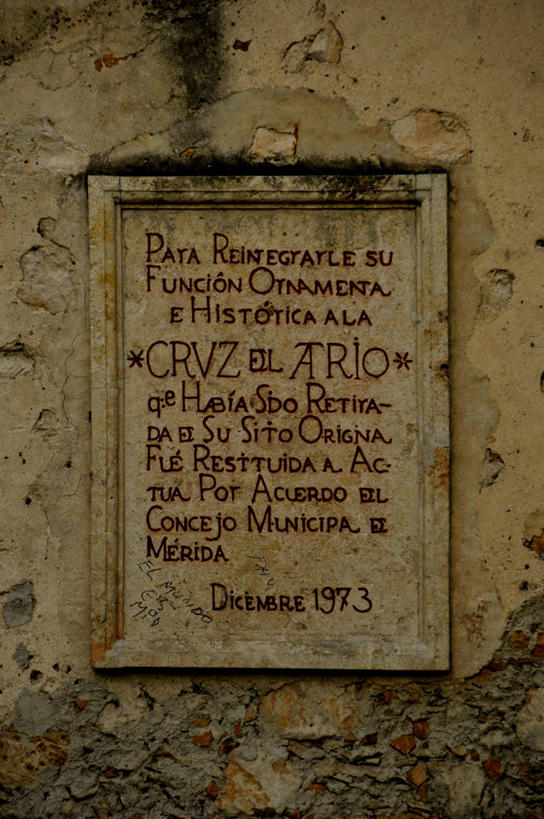 PARA REINTEGRARLE SU
FUNCIÓN ORNAMENTAL
E HISTÓRICA A LA
*CRVZ DEL ATRIO*
q.e HABÍA SIDO RETIRA-
DA DE SU SITIO ORIGINAL
FUÉ RESTITUIDA AL AC-
TUAL POR ACUERDO DEL
CONCEJO MUNICIPAL DE
MÉRIDA
DICIEMBRE 1973
EL MUNDO
ES
MIO